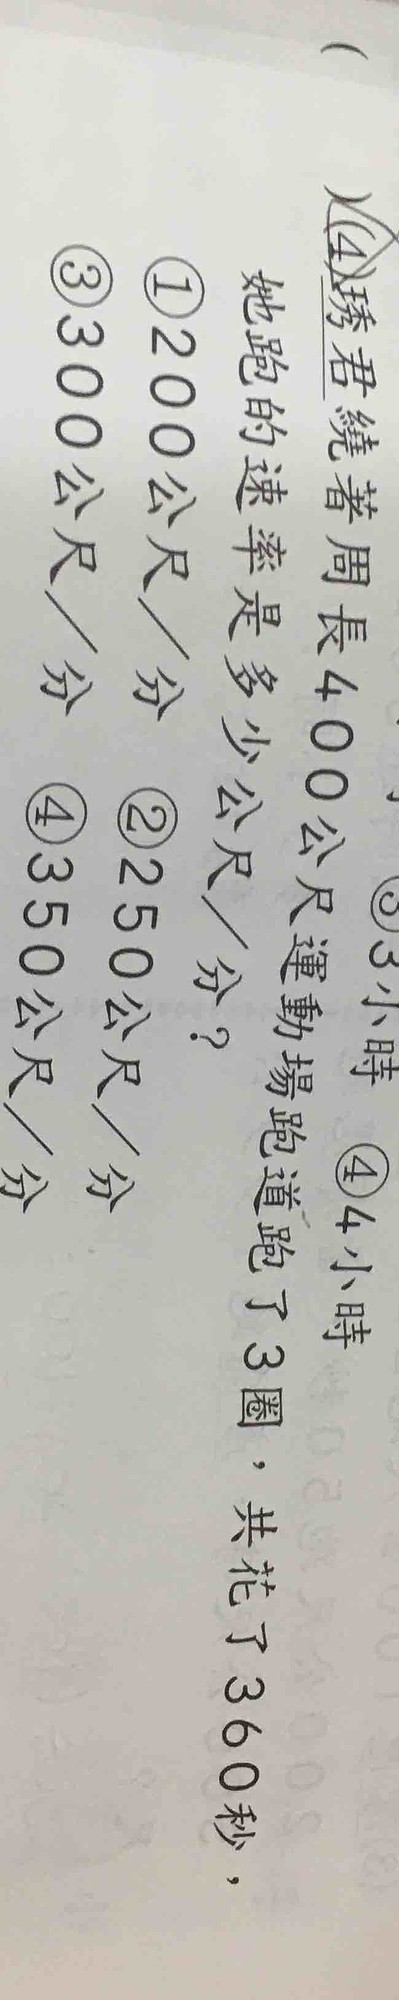 ③3小時 ④4小時
( )(4)琇君繞著周長400公尺運動場跑道跑了3圈，共花了360秒，
她跑的速率是多少公尺／分？
①200公尺／分 ②250公尺／分
③300公尺／分 ④350公尺／分